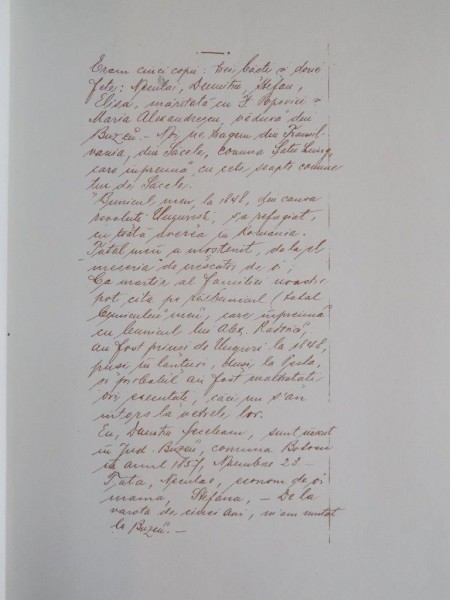 Eram cinci copii: trei băeți și două
fete: Neculai, Dumitru, Ștefan,
Elisa, măritată cu I. Popovici și
Maria Alexandrescu, văduvă din
Buzeŭ. — Noi ne tragem din Transil-
vania, din Sacele, comuna Satu Lung,
care împreună cu cele șeapte comune
de Sacele.
"Bunicul meu, la 1848, din causa
revoluției Ungurești, s'a refugiat,
cu toată averea în România.
Tatăl meŭ a moștenit, de la el
"meseria" de crescător de oi;
Ca martir al familiei noastre
pot cita pe (tatăl
bunicului meŭ), care împreună
cu bunicul lui Alex.
au fost prinși de Unguri la 1848,
puși în lanțuri, duși la
și probabil au fost maltratați
ori executați, căci nu s'aŭ
întors la vetrele lor.
Eŭ, Dumitru Seceleanu, sunt născut
în Jud. Buzeŭ, comuna
în anul 1857, Noembre 23 —
Tata, Neculae, econom de oi
mama, Ștefana, — De la
varsta de cinci ani, m'am mutat
la Buzeŭ. —